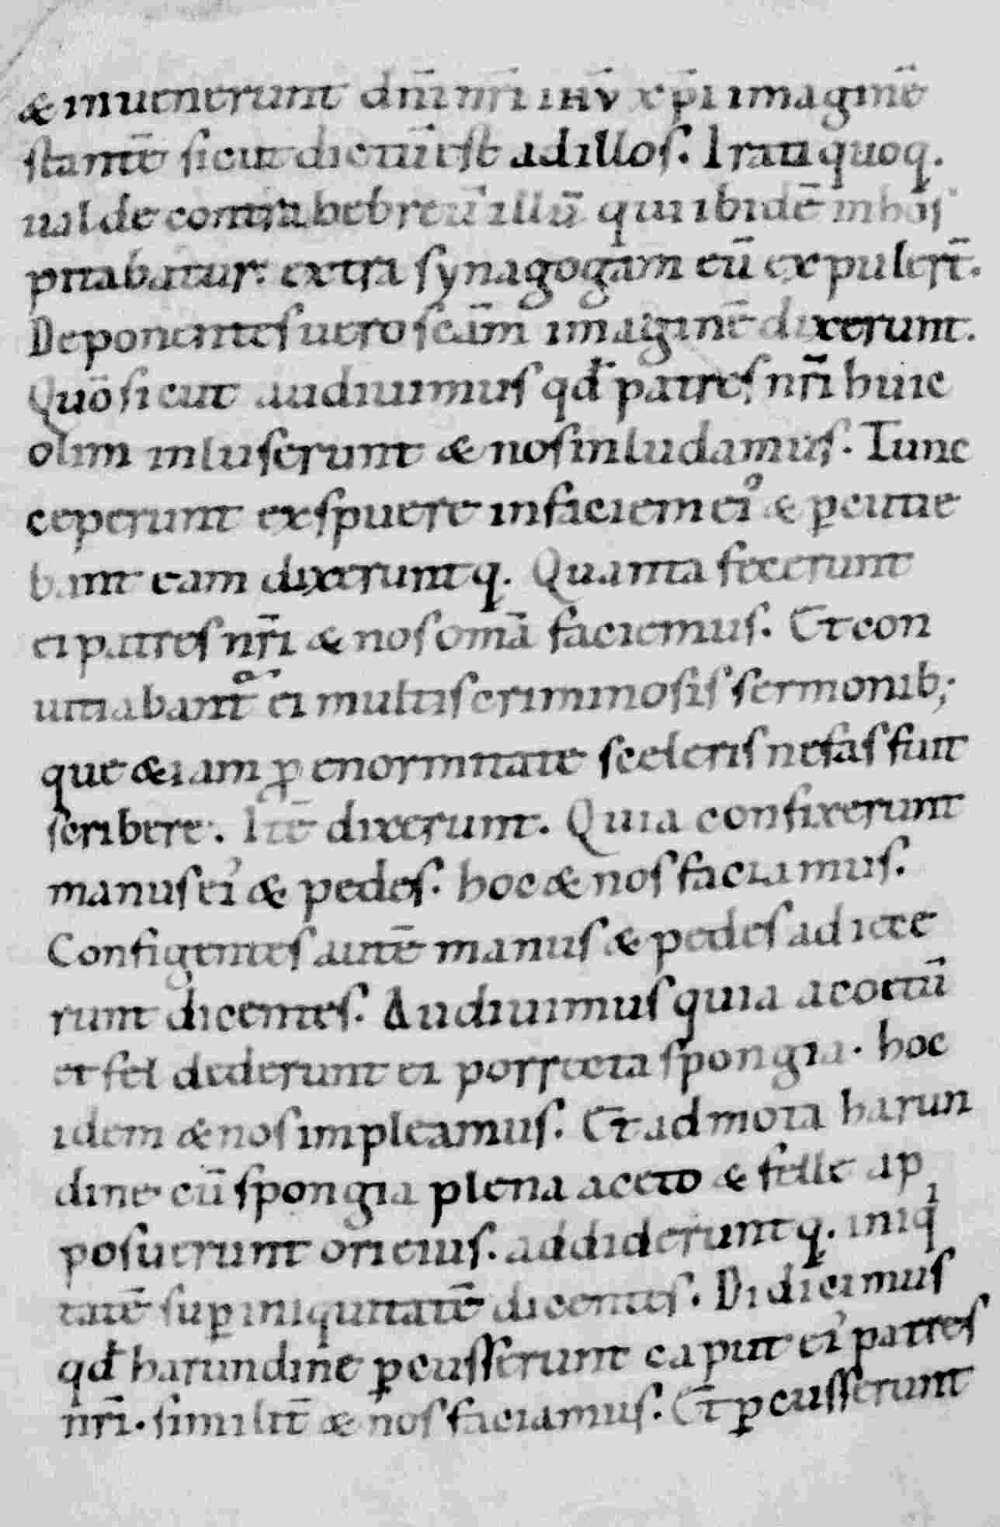 & inuenerunt dn̄i nr̄i ihū xp̄i imaginē
stantē sicut dictū est ad illos. Irati quoq.
ualde contra hebreū illū qui ibidē in hos
pitabatur. extra synagogam eū expulert̄.
Deponentes uero scām imaginē dixerunt.
Quō sicut audiuimus qđ patres nr̄i huic
olim inluserunt & nos inludamus. Tunc
ceperunt exspuere in faciem ei᾽ & p̱cutie
bant eam dixeruntq. Quanta fecerunt
ei patres nr̄i & nos omā faciemus. Et con
uitiabant᷒ ei multis criminosis sermonib;
que & iam ꝓ enormitate sceleris nefas fuit
scribere. Itē dixerunt. Quia confixerunt
manus ei᾽ & pedes. hoc & nos faciamus.
Configentes autē manus & pedes adiece
runt dicentes. Audiuimus quia acoctū
et fel dederunt ei porrecta spongia. hoc
idem & nos impleamus. Et admota harun
dine cū spongia plena aceto & felle ap
posuerunt ori eius. addideruntq. iniqⁱ
tatē sup̱ iniquitatē dicentes. Didicimus
qđ harundine p̱cusserunt caput ei᾽ patres
nr̄i. similit̄ & nos faciamus. Et p̱cusserunt